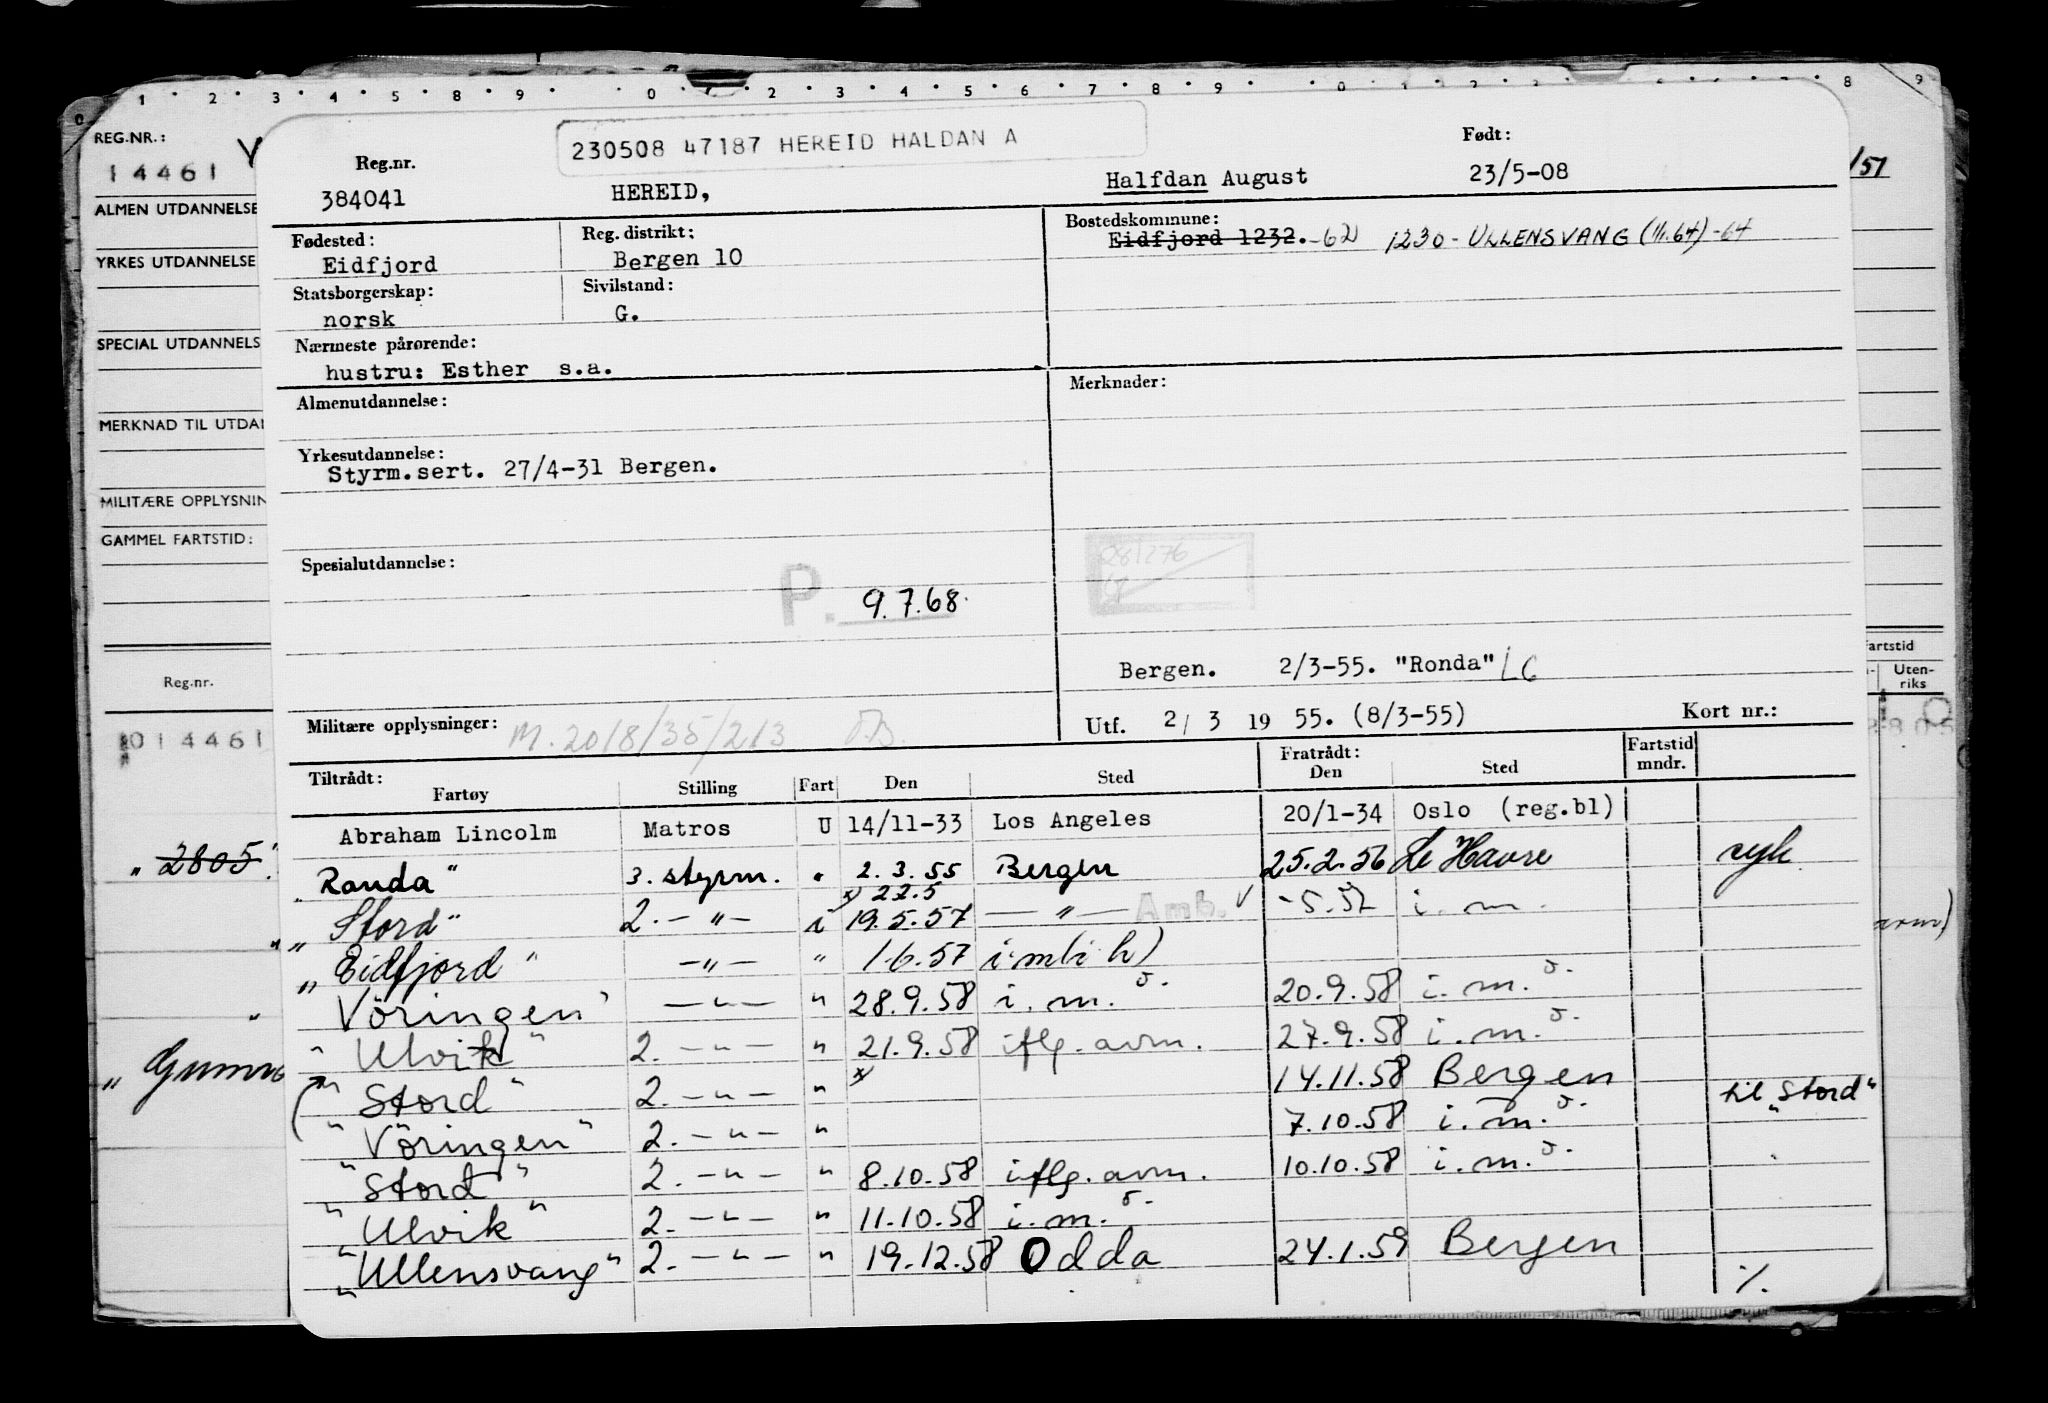 1 · 2 · 3 · 4 · 5 · 8 · 9 · 0 · 2 · 3 · 4 · 5 · 6 · 7 · 8 · 9 · 0 · 8 · 9
REG.NR.:
14461
ALMEN UTDANNELSE
YRKES UTDANNELSE
SPECIAL UTDANNELS
MERKNAD TIL UTDAN
MILITÆRE OPPLYSNIN
GAMMEL FARTSTID:
Reg.nr.
014461
" 2805 "
" Gunn
/51
artstid
Uten-
riks
arm)
230508 47187 HEREID HALDAN A
Reg.nr. Født:
384041 HEREID, Halfdan August 23/5-08
Fødested: Reg. distrikt: Bostedskommune:
Eidfjord Bergen 10 Eidfjord 1232.-62 1230 - ULLENSVANG (1/1.64) -64
Statsborgerskap: Sivilstand:
norsk G.
Nærmeste pårørende:
hustru: Esther s.a.
Almenutdannelse: Merknader:
Yrkesutdannelse:
Styrm.sert. 27/4-31 Bergen.
Spesialutdannelse:
P. 9.7.68.
281276
Bergen. 2/3-55. "Ronda" LC
Militære opplysninger: M.2018/35/213 Utf. 2/3 1955. (8/3-55) Kort nr.:
Tiltrådt: Fratrådt: Fartstid
Fartøy Stilling Fart Den Sted Den Sted mndr.
Abraham Lincolm Matros U 14/11-33 Los Angeles 20/1-34 Oslo (reg.bl)
" Ronda " 3. styrm. " 2.3.55 Bergen 25.2.56 Le Havre syk
x) 22.5
" Stord " 2. —"— i 19.5.57 —"— Amb. √ -5.57 i.m.
" Eidfjord " —"— " 1.6.57 i.m(i h)
" Vöringen " —"— " 28.9.58 i.m.ö. 20.9.58 i.m.ö.
" Ulvik " 2. —"— " 21.9.58 iflg. avm. 27.9.58 i.m.ö.
" Stord " 2. —"— " x) 14.11.58 Bergen
" Vöringen " 2. —"— " 7.10.58 i.m.ö. til "Stord"
" Stord " 2. —"— " 8.10.58 iflg. avm. 10.10.58 i.m.ö.
" Ulvik " 2. —"— " 11.10.58 i.m.ö.
" Ullensvang " 2. —"— " 19.12.58 Odda 24.1.59 Bergen
·/.